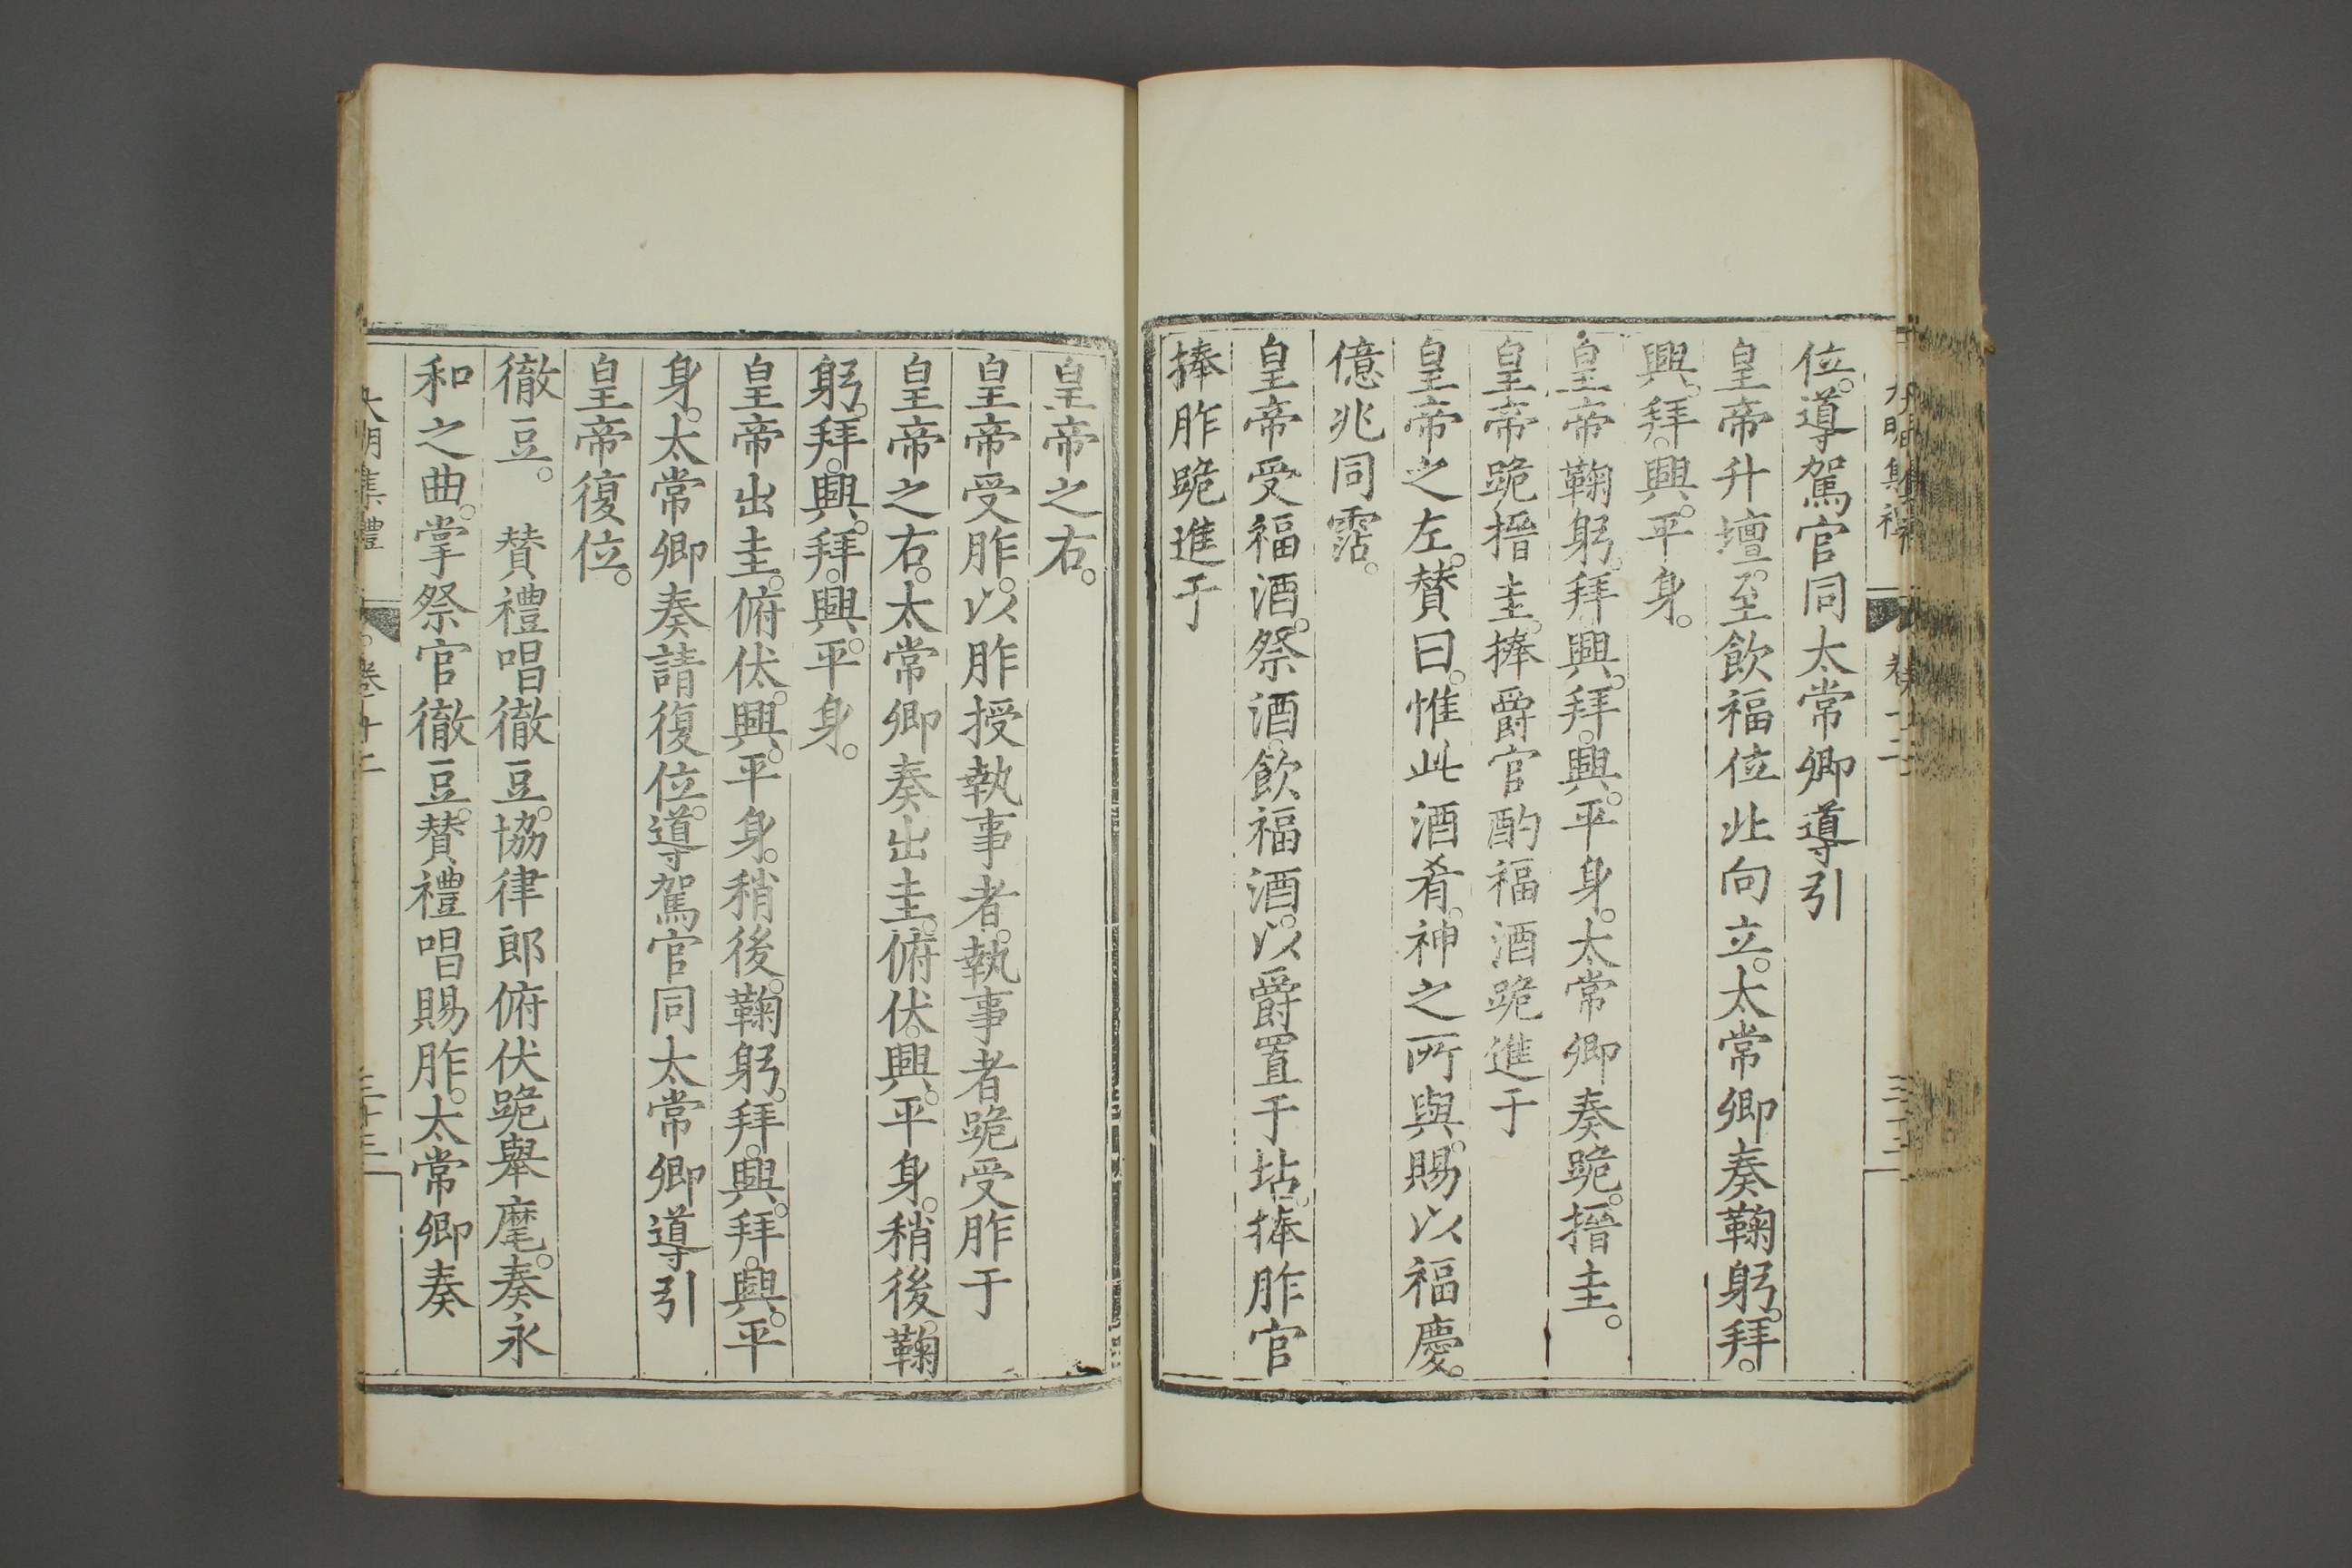 位。導駕官同太常卿導引
皇帝升壇。至飲福位北向立。太常卿奏鞠躬。拜。
興。拜。興。平身。
皇帝鞠躬。拜。興。拜。興。平身。太常卿奏跪。搢圭。
皇帝跪搢圭。捧爵官酌福酒跪進于
皇帝之左。贊曰。惟此酒肴。神之所與。賜以福慶。
億兆同霑。
皇帝受福酒。祭酒。飲福酒。以爵置于坫。捧胙官
捧胙跪進于
皇帝之右。
皇帝受胙。以胙授執事者。執事者跪受胙于
皇帝之右。太常卿奏出圭。俯伏。興。平身。稍後。鞠
躬。拜。興。拜。興。平身。
皇帝出圭。俯伏。興。平身。稍後。鞠躬。拜。興。拜。興。平
身。太常卿奏請復位。導駕官同太常卿導引
皇帝復位。
徹豆。 贊禮唱徹豆。協律郎俯伏跪舉麾。奏永
和之曲。掌祭官徹豆。贊禮唱賜胙。太常卿奏
大明集禮 卷十二 三十三